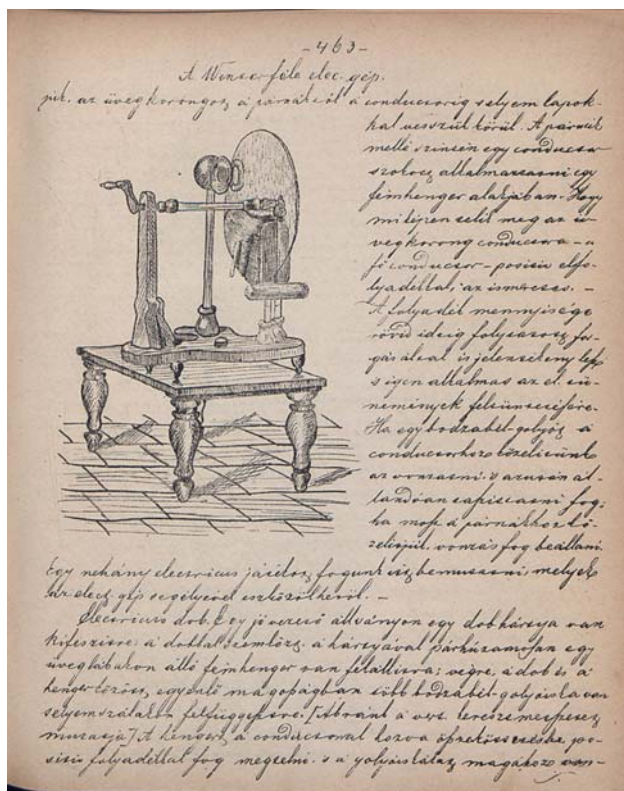 -463-
A Winter féle elec. gép.
az üvegkorongos a párnáktól a conductorig selyem lapok-
kal veszszük körül. A párnák
mellé szintén egy conductor
szokos alkalmaztatni egy
fémhenger alakjában. Hogy
miképen telik meg az ü-
vegkorong conductora - a
fő conductor - positiv elfo-
lyadékkal, az ismeretes. -
A folyadék mennyisége
rövid ideig folytatott for-
gás által is jelentékeny
s igen alkalmas az el. tü-
nemények feltüntetésére.
Ha egy bodzabél-golyós a
conductorhoz közelitünk
az vonzatni s azután ál-
landóan taszittatni fog;
ha most a párnákhoz kö-
zelitjük, vonzás fog beállani.
Egy nehány electricus játékos fogunk itt bemutatni, melyek
az elect. gép segélyével eszközölhetők. -
Electricus dob. Egy jó vezető állványon egy dobhártya van
kifeszitve; a dobbal szemközt a hártyával párhúzamosan egy
üveglábakon álló fémhenger van felállitva; végre, a dob és a
henger között, egyenlő magosságban több bodzabél-golyóiska van
selyemszálakon felfüggesztve. [Ábránk a
mutatja] A henger a conductorral hozva összeköttetésbe po-
sitiv folyadékkal fog megtelni s a golyóiskákat magához von-